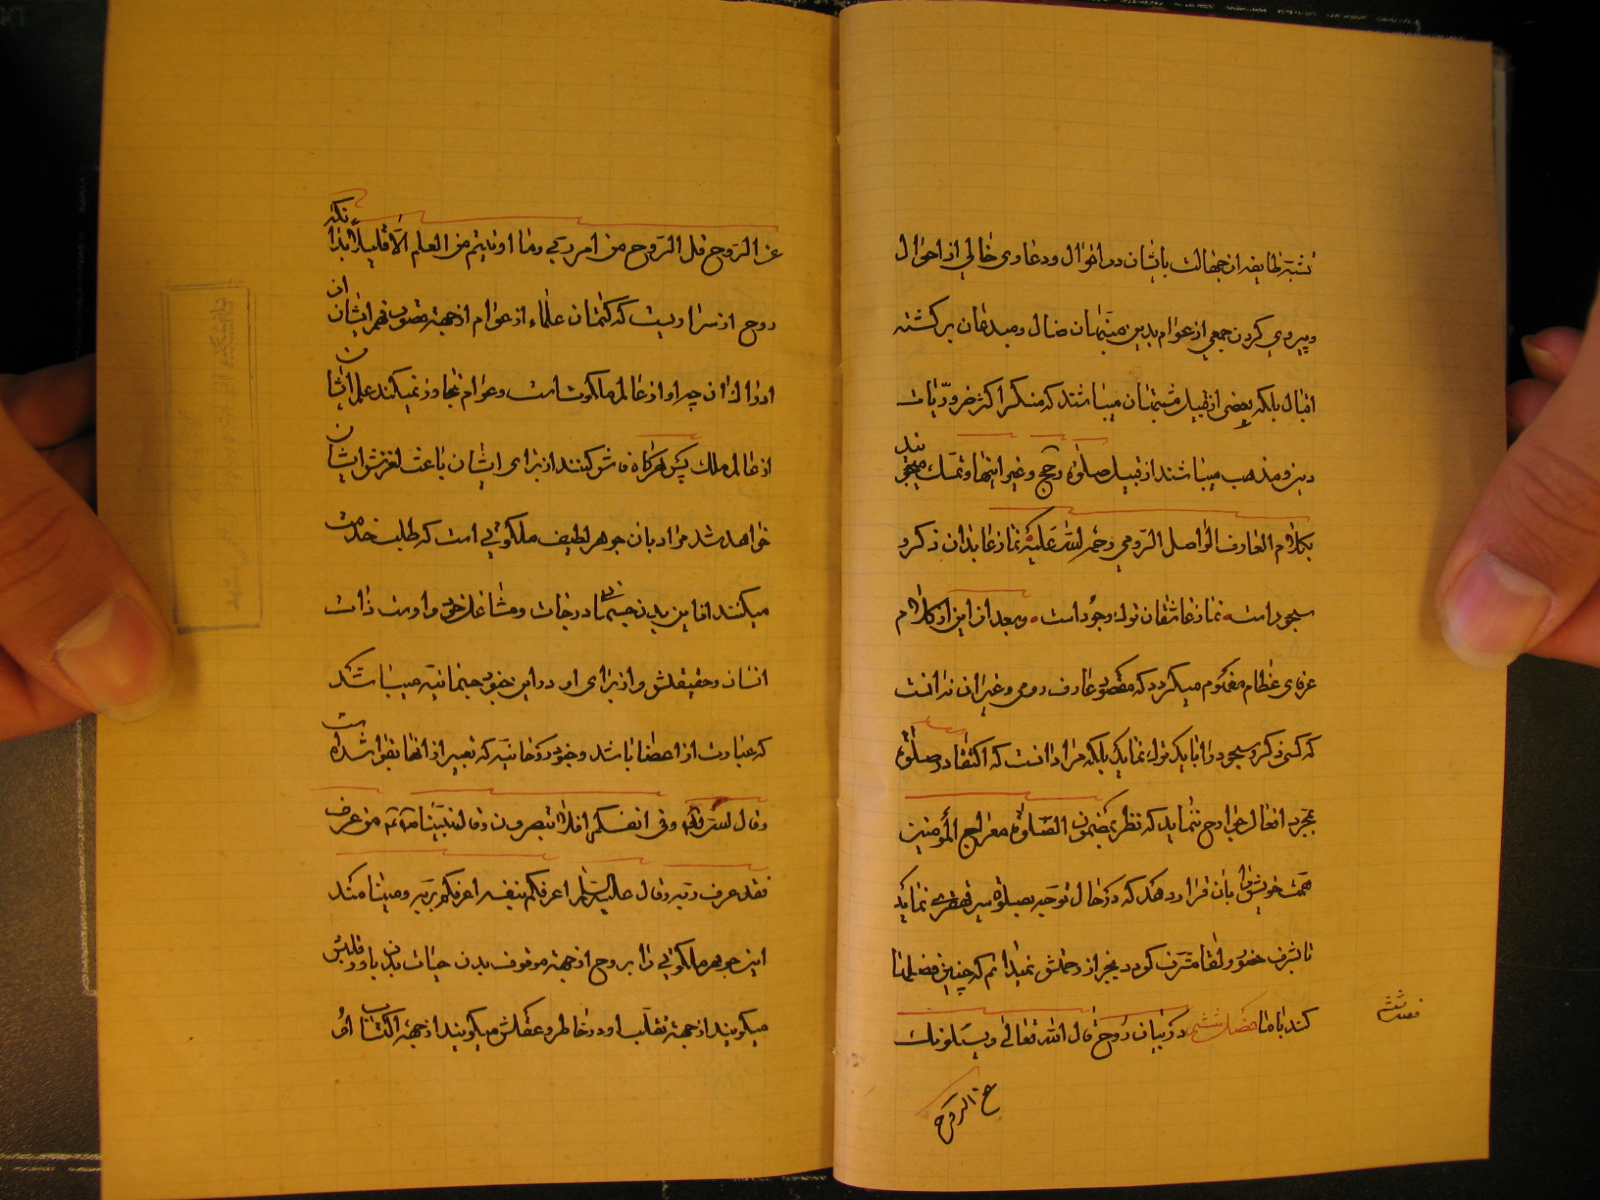 نشبته طایفه از جهالت بایشان در اخوال و دعاوی خالی از احوال
و پیروی کردن جمعی از عوام بدین متیهان ضال و مبدعان برگشته
اقبال بلکه بعضی از قبیل متیهان میباشند که منکر اکثر ضروریات
دین و مذهب میباشند از قبیل صلوة و حج و غیر اینها و تمسک میجویند
بکلام العارف الواصل الرومی رحمه الله علیه نماز عابدان ذکر و
سجود است نماز عاشقان ترک وجود است و بعد از این از کلام
عرفای عظام مفهوم میگردد که مقصود عارف رومی و غیر ان نه انست
که کسی ذکر و سجود را باید ترک نماید بلکه مراد انست که اکتفا در صلوة
بمجرد افعال جوارح ننماید که نظر بمضمون الصلوة معراج المؤمنین
همت خویش را بان قرار دهد که در حال توجه بصلوة سیر نماید
تا بشرف حضور و لقا مشرف کردد بجز از رحمتش نمیدانم که چنین فضل بما
کند یا ما فصل ششم در بیان روح قال الله تعالی و یسئلونک
فصل ششم
عن الروح
عن الروح قل الروح من امر ربی و ما اوتیتم من العلم الا قلیلا بدانکه
روح از سرا ریست که کتمان علماء از عوام از جهة قصور فهم ایشان
ادراک ان چه او از عالم ملکوت است و عوام تجاوز نمیکند علم ایشان
از عالم ملک پس هرگاه فاش کنند از برای ایشان باعث لغزش ایشان
خواهد شد مراد بان جوهر لطیف ملکوتی است که طلب خدمت
میکنند از این بدن جسمانی در حاجات و مشاغل خود و اوست ذات
انسان و حقیقتش و از برای او در این جنود جسمانیه میباشد
که عبارت از اعضا باشد و جنود روحانیه که تعبیر از انها بقوا شده است
و قال الله تعالی وفی انفسکم افلا تبصرون و قال نبینا من عرف
فقد عرف ربه و قال علیه السلام اعرفکم بنفسه اعرفکم بربه و مینامند
این جوهر ملکوتی را بروح از جهة موقوف بودن حیات بدن باو و قلبش
میگویند از جهة تقلب او در خاطر و عقلش میگویند از جهة اکتساب او